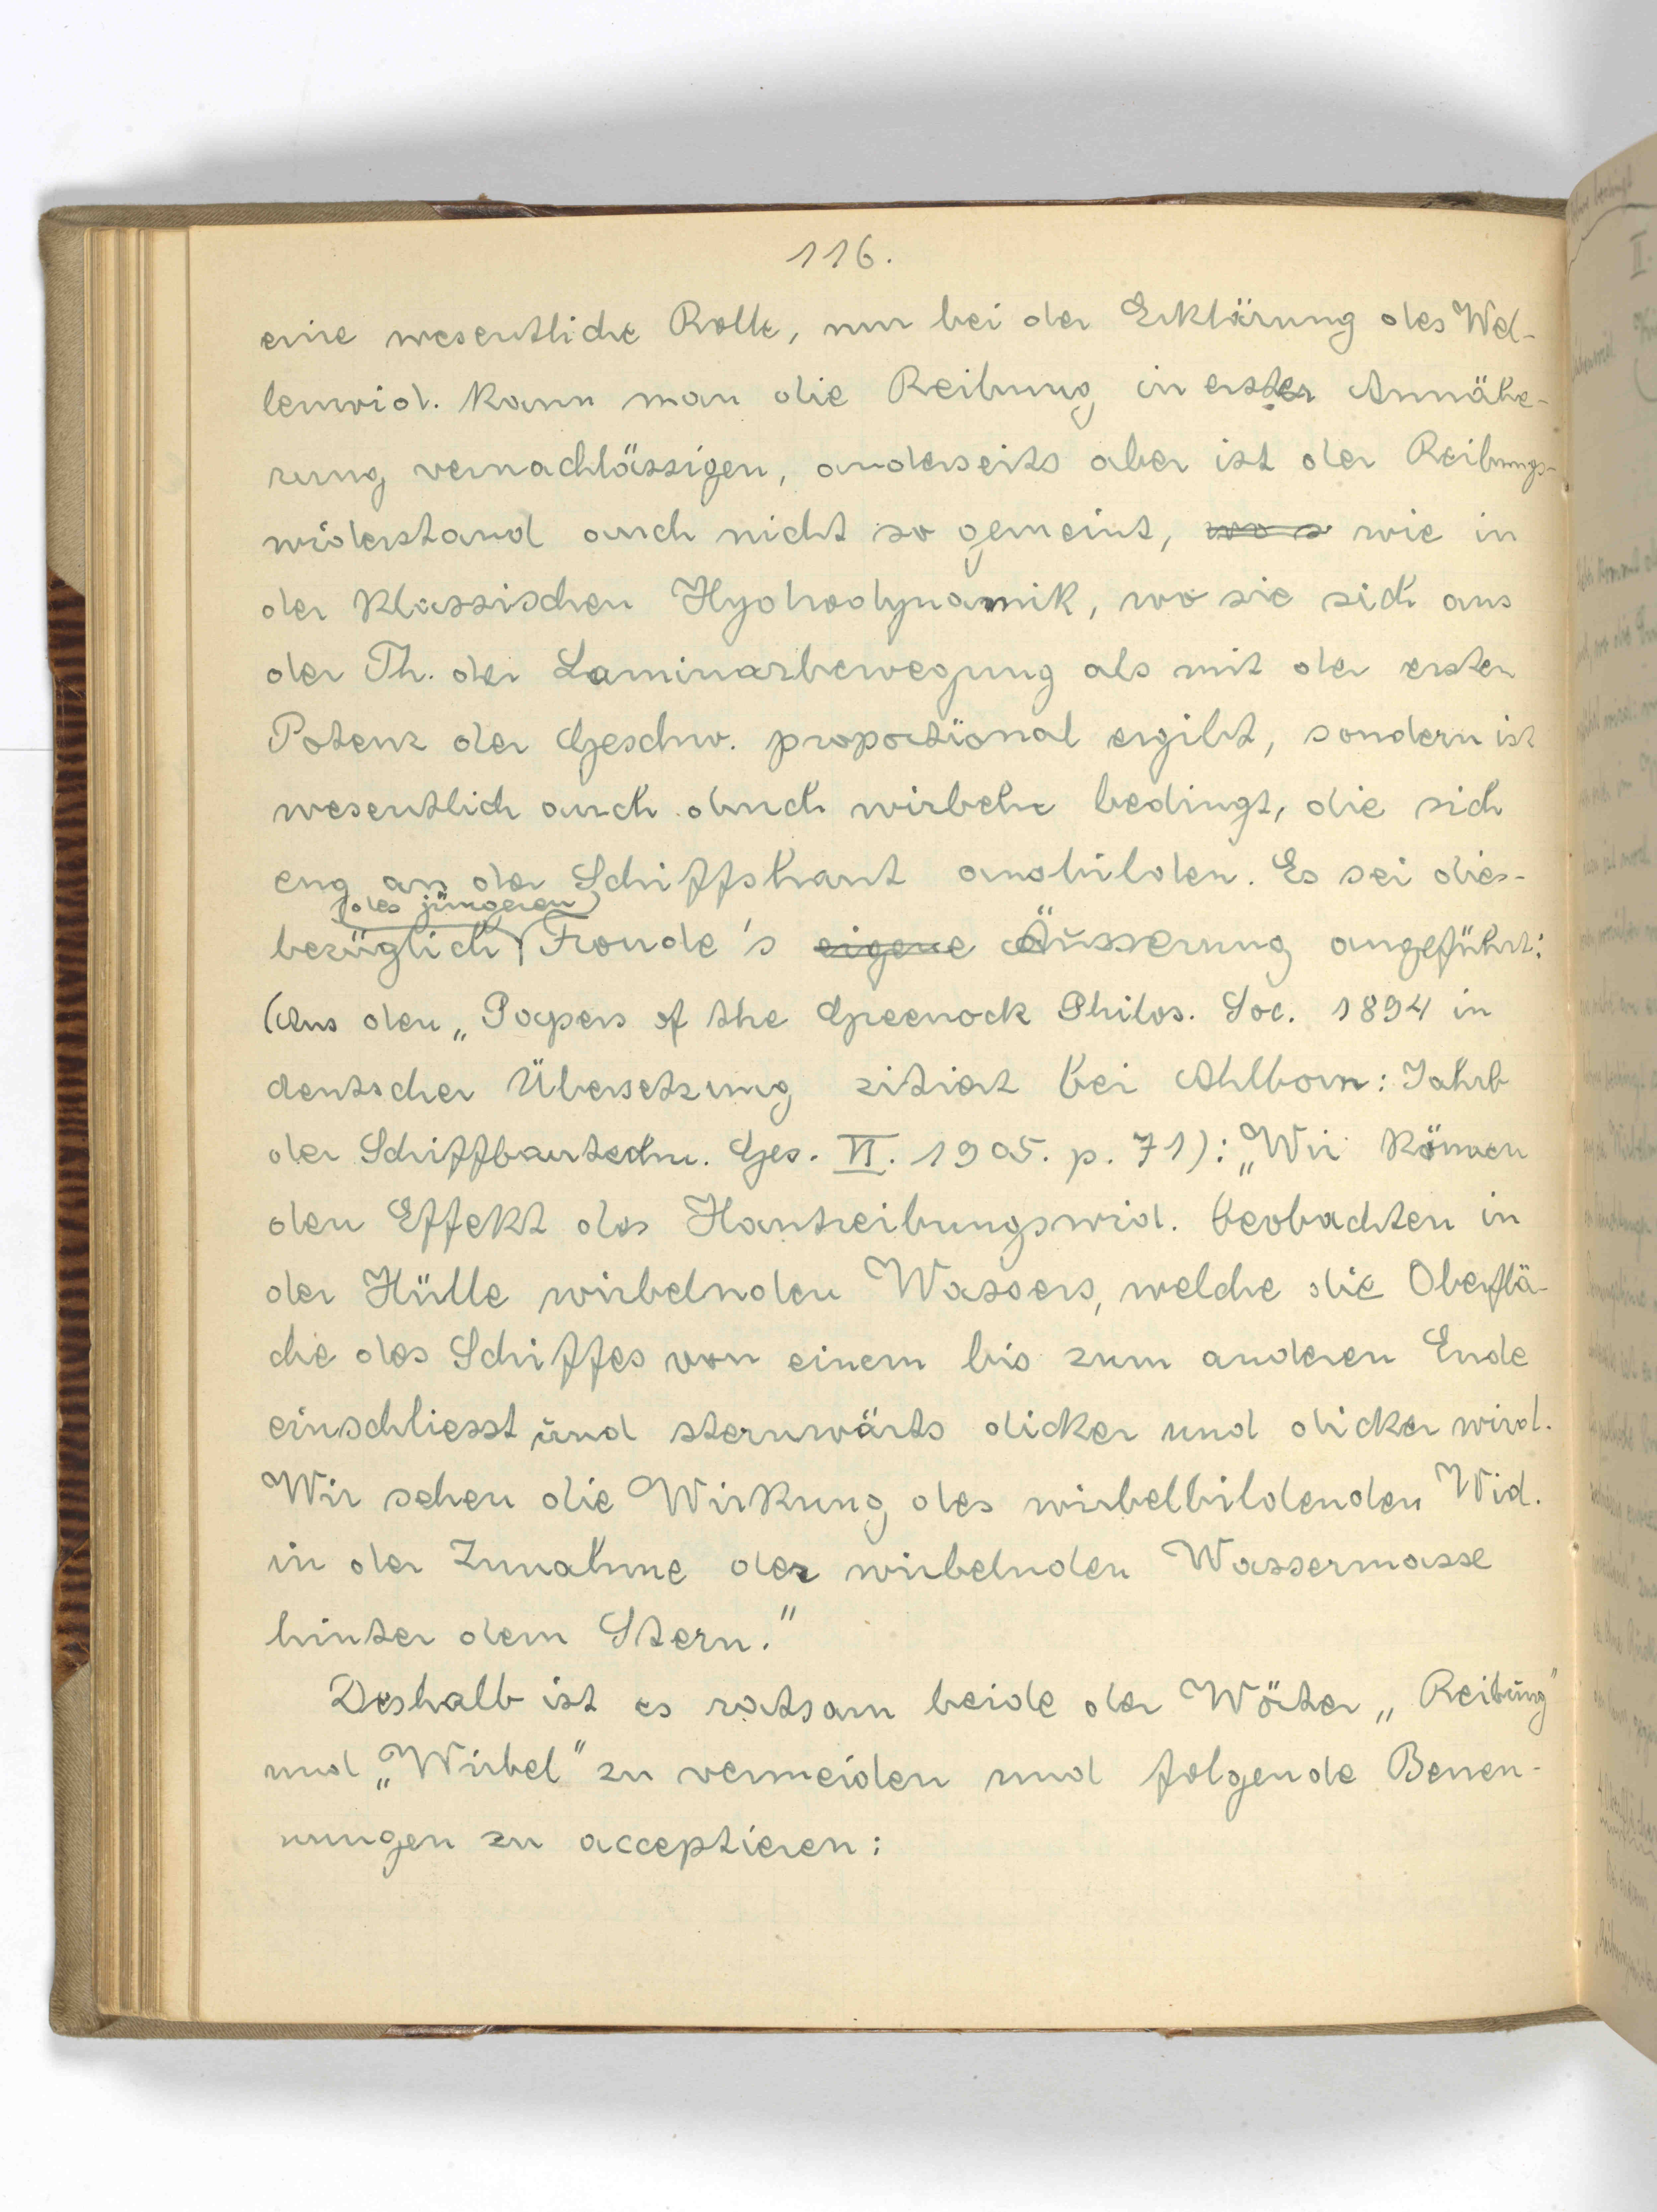 116.
eine wesentliche Rolle, nur bei der Erklärung des Wel-
lenwid. kann man die Reibung in erster Annähe-
rung vernachlässigen, anderseits aber ist der Reibungs-
widerstand auch nicht so gemeint, wo s wie in
der klassischen Hydrodynamik, wo sie sich aus
der Th. der Laminarbewegung als mit der ersten
Potenz der Geschw. proportional ergibt, sondern ist
wesentlich auch durch wirbeln bedingt, die sich
eng an der Schiffshaut ausbilden. Es sei dies-
des jüngeren
bezüglich Froude's eigene Äusserung angeführt:
(Aus den „Papers of the Greenock Philos. Soc. 1894 in
deutscher Übersetzung zitiert bei Ahlborn: Jahrb
der Schiffbautechn. Ges. VI. 1905. p. 71): „Wir können
den Effekt des Hautreibungswid. beobachten in
der Hülle wirbelnden Wassers, welche die Oberflä-
che des Schiffes von einem bis zum anderen Ende
einschliesst und sternwärts dicker und dicker wird.
Wir sehen die Wirkung des wirbelbildenden Wid.
in der Zunahme der wirbelnden Wassermasse
hinter dem Stern."
Deshalb ist es ratsam beide der Wörter „Reibung"
und „Wirbel" zu vermeiden und folgende Benen-
nungen zu acceptieren: